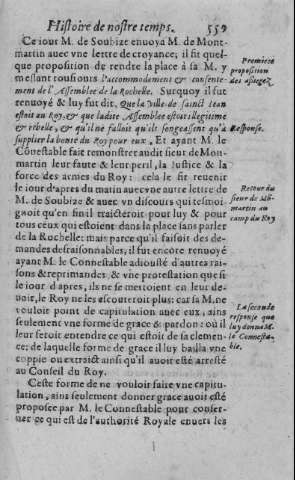 Histoire de nostre temps. 559
Ce iour M. de Soubize enuoya M. de Mont-
martin auec vne lettre de croyance; il fit quel-
que proposition de rendre la place à sa M. y
meslant tousiours l'accommodement & consente-
ment de l'Assemblee de la Rochelle. Surquoy il fut
renuoyé & luy fut dit, Que la ville de sainct Iean
estoit au Roy, & que ladite Assemblee estoit illegitime
& rebelle, & qu'il ne falloit qu'ils songeassent qu'à
supplier la bonté du Roy pour eux. Et ayant M. le
Conestable fait remonstrer audit sieur de Mont-
martin leur faute & leur peril, la Iustice & la
force des armes du Roy: cela le fit reuenir
le iour d'apres du matin auec vne autre lettre de
M. de Soubize & auec vn discours qui tesmoi-
gnoit qu'en fin il traicteroit pour luy & pour
tous ceux qui estoient dans la place sans parler
de la Rochelle: mais parce qu'il faisoit des de-
mandes desraisonnables, il fut encore renuoyé
ayant M. le Connestable adiousté d'autres rai-
sons & reprimandes, & vne protestation que si
le iour d'apres, ils ne se mettoient en leur de-
uoir, le Roy ne les escouteroit plus: car sa M. ne
vouloit point de capitulation auec eux, ains
seulement vne forme de grace & pardon: où il
leur feroit entendre ce qui estoit de sa clemen-
ce; de laquelle forme de grace il luy bailla vne
coppie ou extraict ainsi qu'il auoit esté arresté
au Conseil du Roy.
Ceste forme de ne vouloir faire vne capitu-
lation, ains seulement donner grace auoit esté
proposée par M. le Connestable pour conser-
uer ce qui est de l'authorité Royale enuers les
Premiere
proposition
des assiegez.
Response.
Retour du
sieur de Mõ-
martin au
camp du Roy
La seconde
response que
luy donne M.
le Connesta-
ble.